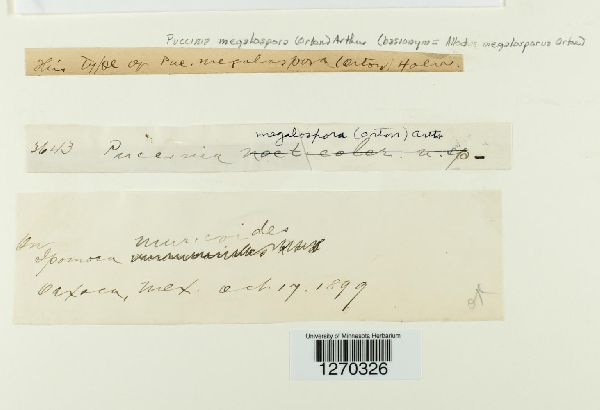 Puccinia megalospora (Orton) Arthur (basionym = Allodus megalosporus Orton)
This Type of Puc. megalospora (Orton)
megalospora (Orton) Arth
3643 Puccinia nocticolor n. sp.
On
muricoides
Ipomoea
Oaxaca, Mex. Oct. 17. 1899
University of Minnesota Herbarium
1270326